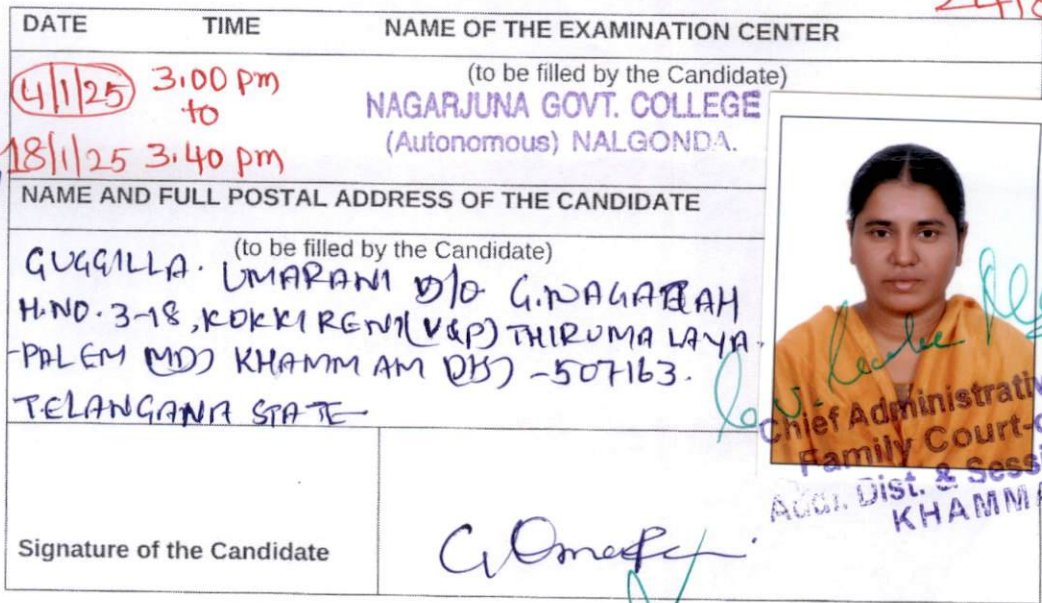 DATE TIME NAME OF THE EXAMINATION CENTER
(to be filled by the Candidate)
4/1/25 3.00 pm
to
18/1/25 3.40 pm
NAGARJUNA GOVT. COLLEGE
(Autonomous) NALGONDA.
NAME AND FULL POSTAL ADDRESS OF THE CANDIDATE
(to be filled by the Candidate)
GUGGILLA. UMARANI D/O G.NAGAIAH
H.NO. 3-18, KOKKIRENI (V&P) THIRUMALAYA
-PALEM (MD) KHAMMAM (DIS) -507163.
TELANGANA STATE
Chief Administrativ
Family Court-
Addl. Dist. & Sessi
KHAMMA
Signature of the Candidate